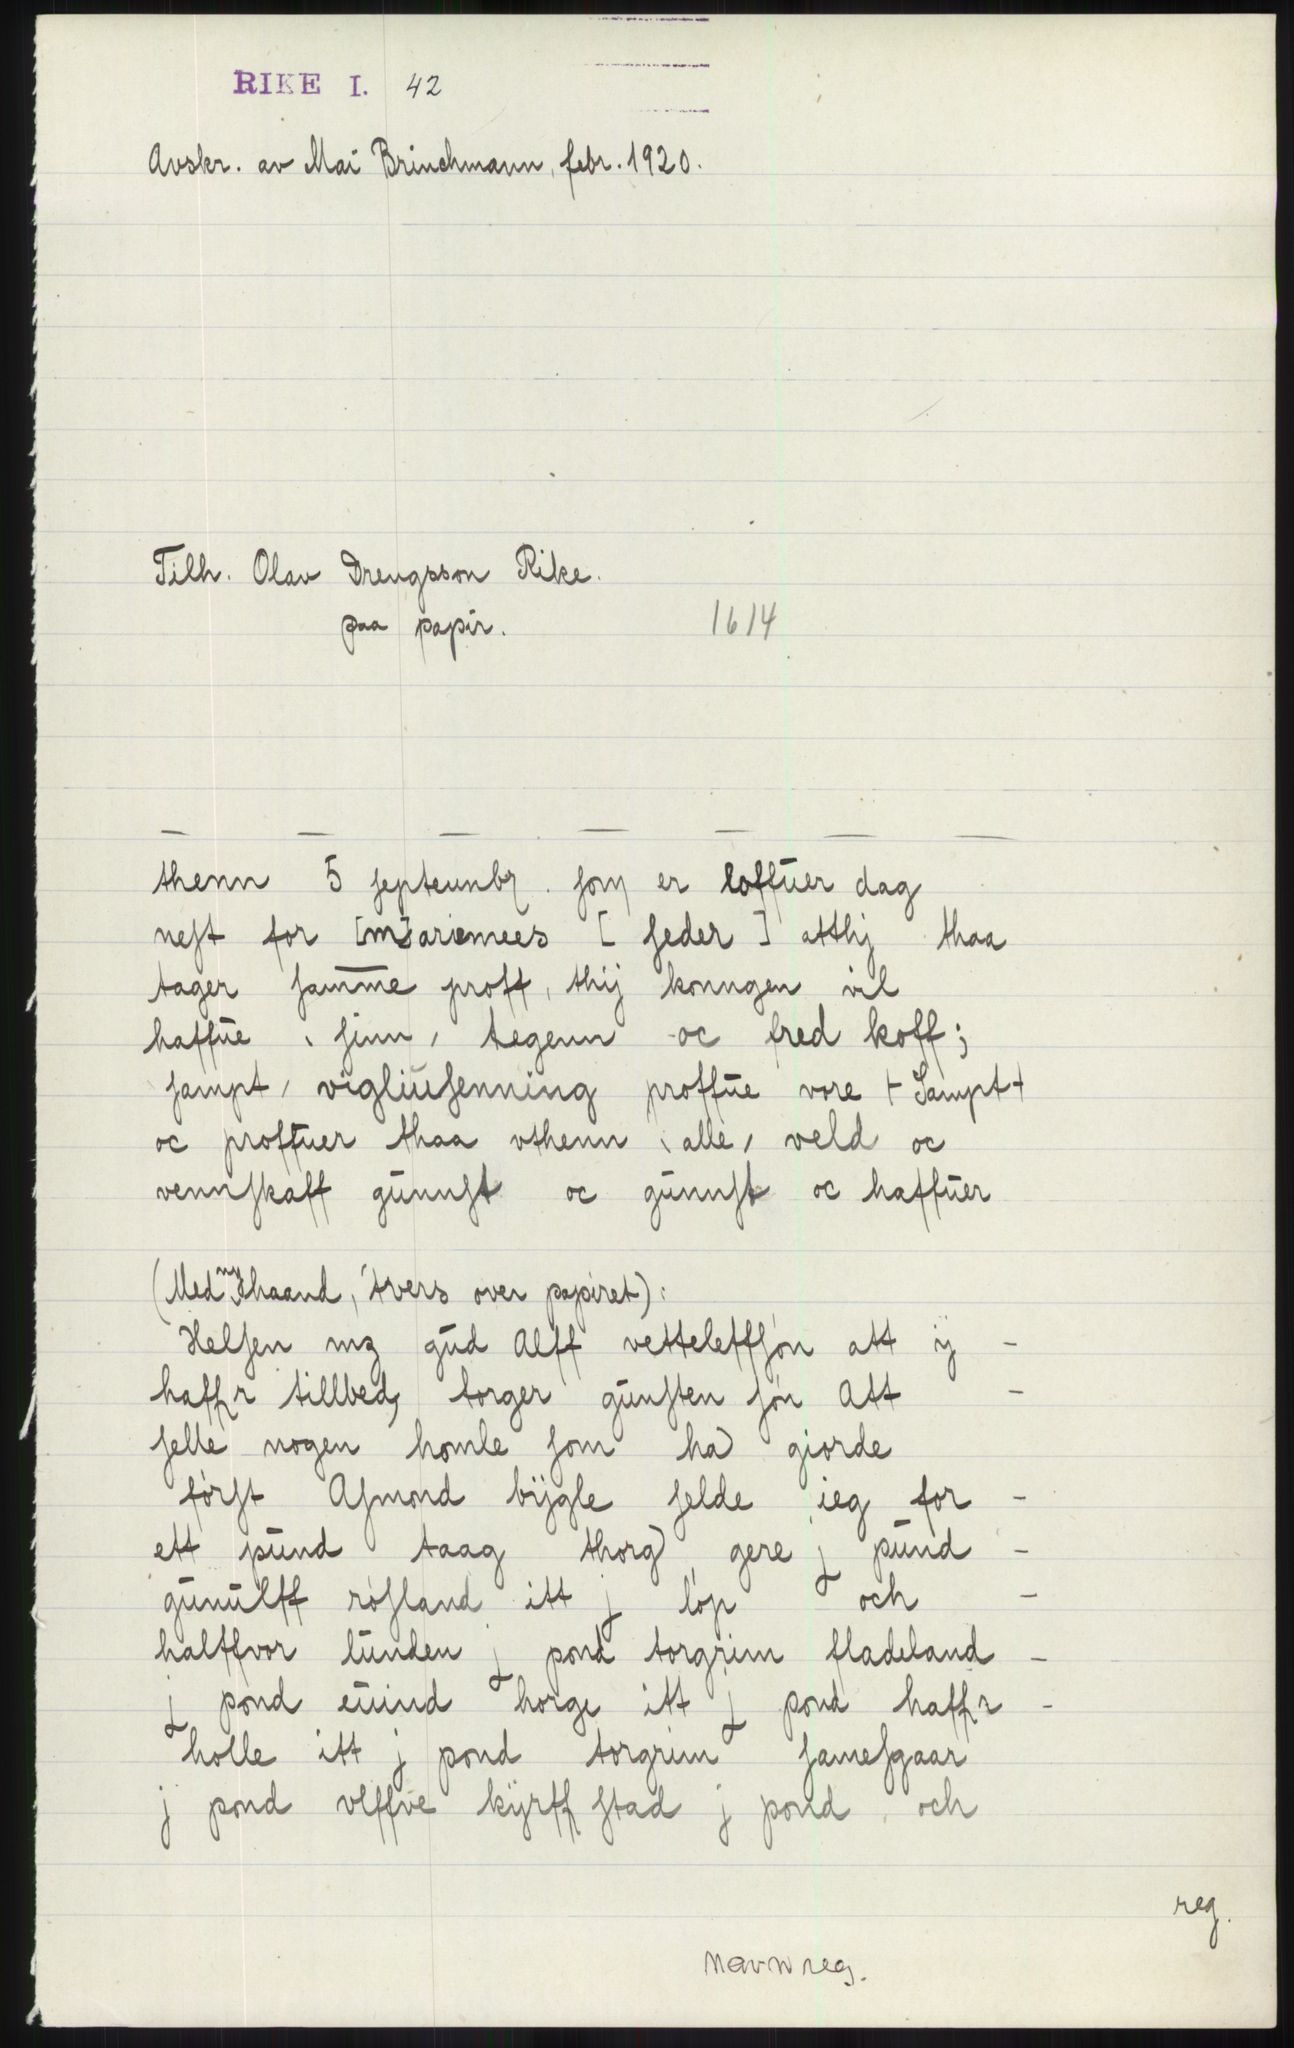 RIKE I. 42
Avskr. av Mai Brinchmann, febr. 1920.
Tilh. Olav Drengsson Rike.
paa papir. 1614
— — — — — — —
thenn 5 septeunbʒ. som er loffuer dag
nest for [m]ariemees [ seder ] atthj thaa
tager samme proff, thij konngen vil
haffue, sinn, tegenn oc fred koff;
sampt, vigliusenning proffue vore + Sampt +
oc proffuer thaa vthenn, alle, veld oc
vennskaff gunnst oc gunnst oc haffuer
(Med ny haand, tvers over papiret):
Helsen mʒ gud Alff vetteleffsøn att ij -
haffr tillbed, torger gunsten søn Att -
selle nogen homle som ha giorde
først Asmond bijgle selde ieg for -
ett pund taag thorg gere j pund -
gunulff røsland itt j løp och -
halffvor lunden j pond torgrim fladeland -
j pond euind horge itt j pond haffr -
holle itt j pond torgrim samesgaar
j pond vlffve kijrff stad j pond och
reg.
Navnreg.